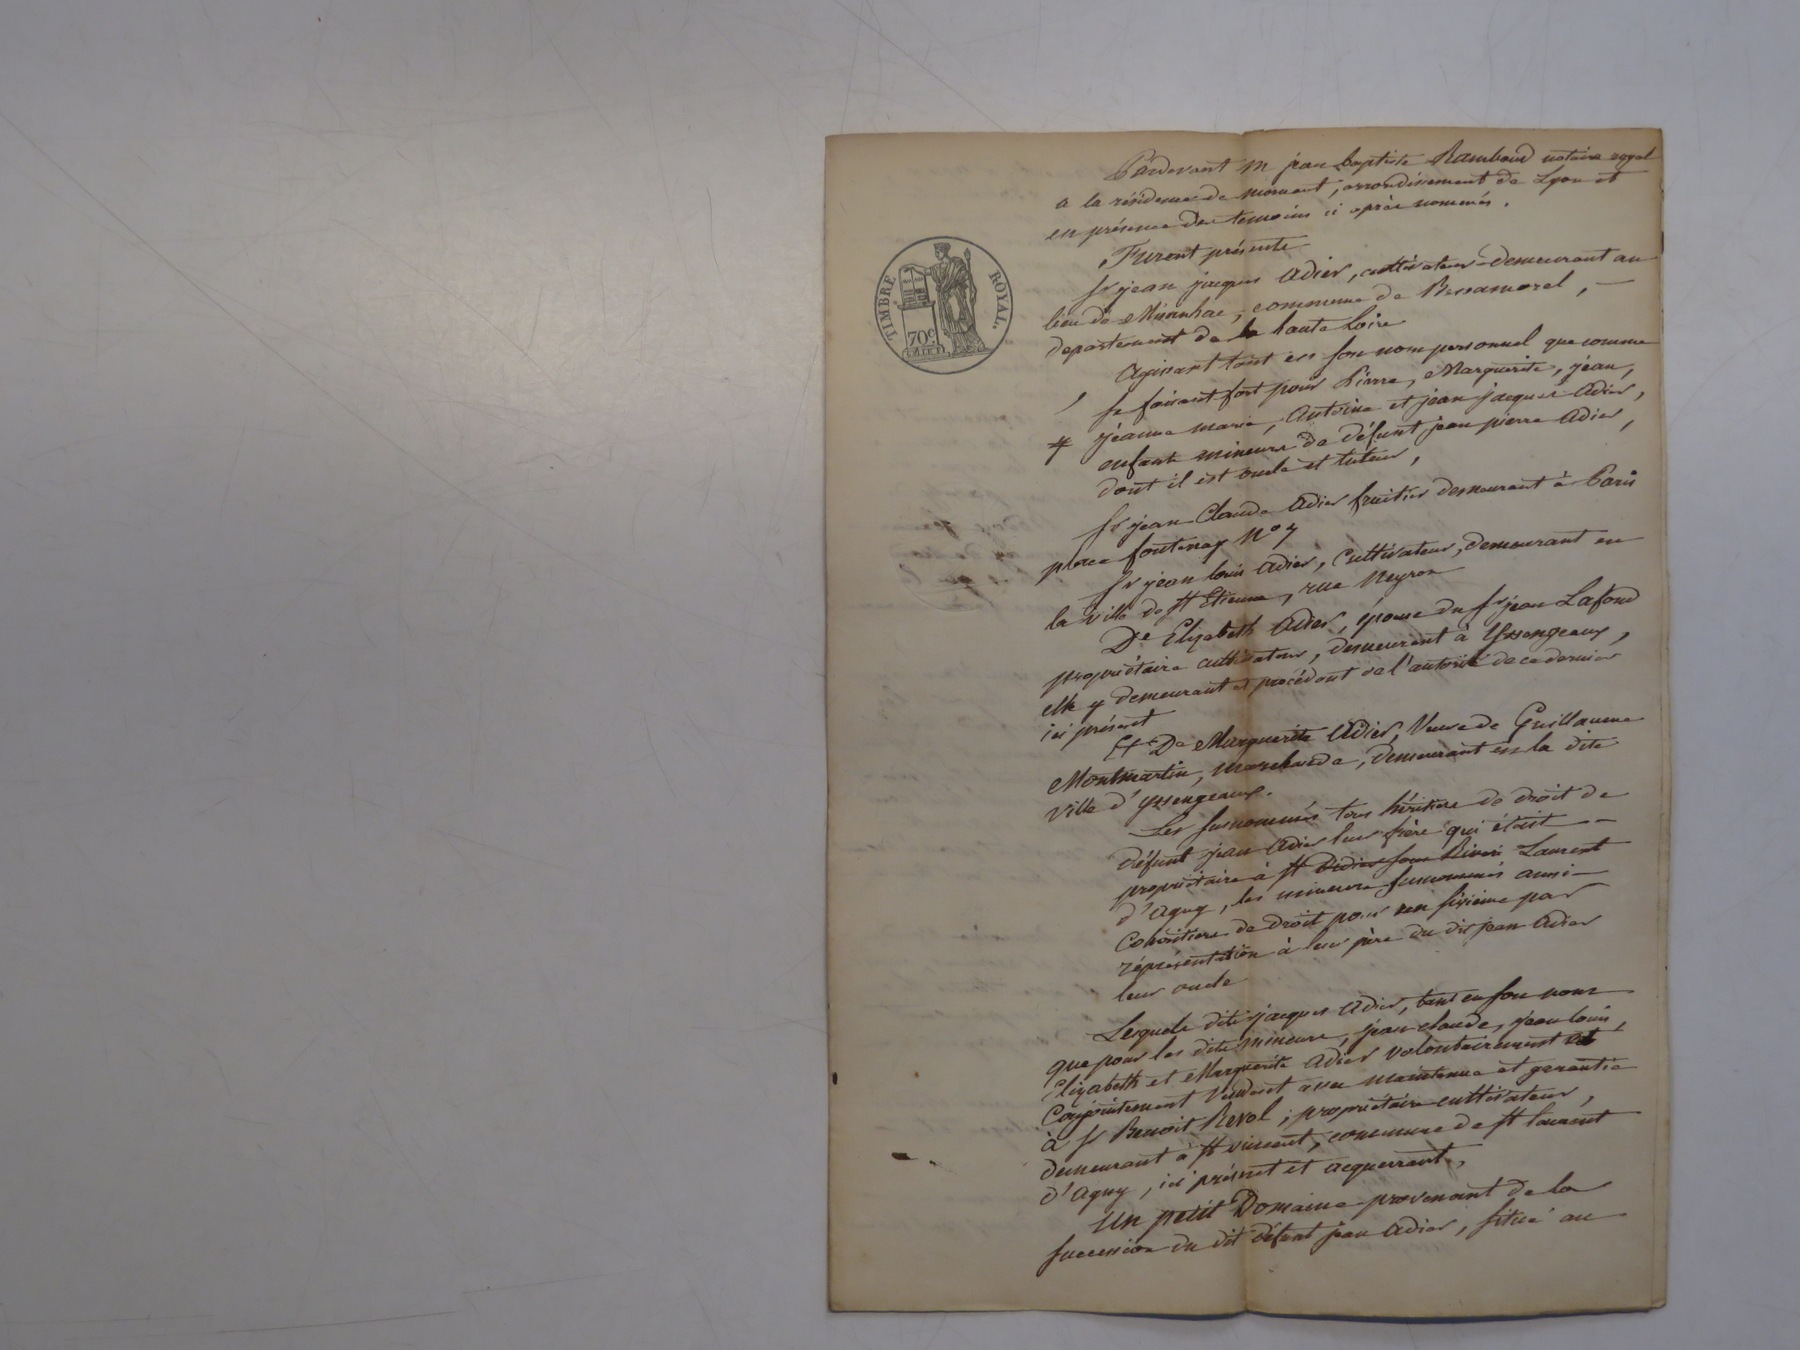 TIMBRE ROYAL.
70c
Pardevant Me jean baptiste Rambaud notaire royal
a la résidence de mornant, arrondissement de Lyon et
en présence des temoins ci après nommés.
Furent présents
Sr jean jacques Adier, cultivateur demeurant au
lieu de, commune de Bessamorel, —
departement de la haute Loire
Agissant tant en son nom personnel que comme
se faisant fort pour Pierre, Marguerite, jean,
jeanne marie, Antoine et jean jacques Adier,
enfants mineurs de défunt jean pierre Adier,
dont il est oncle et tuteur,
Sr jean Claude Adier fruitier demeurant à Paris
place fontenoy No 7
Sr jean louis Adier, Cultivateur, demeurant en
la ville de St Etienne, rue Neyron
De Elizabeth Adier, épouse du Sr jean Lafond
propriétaire cultivateur, demeurant à Yssengeaux,
elle y demeurant et procédant de l'autorité de ce dernier
ici présent
Et De Marguerite Adier, Veuve de Guillaume
Montmartin, marchande, demeurant en la dite
ville d'Yssengeaux.
Les susnommés tous héritiers de droit de
défunt jean Adier leur frère qui était —
propriétaire à St Didier sous Riveri Laurent
d'Agny, les mineurs susnommés aussi
Cohéritiers de droit pour un sixième par
réprésentation à leur père du dit jean Adier
leur oncle
Lesquels dits jacques Adier, tant en son nom
que pour les dits mineurs, jean claude, jean louis,
Elizabeth et Marguerite Adier volontairement et
Conjointement Vendent avec maintenue et garantie
à Sr Benoit Revol, propriétaire cultivateur,
demeurant à St vincent, commune de St laurent
d'Agny, ici présent et acquerrant,
Un petit Domaine provenant de la
succession du dit défunt jean Adier, situé au